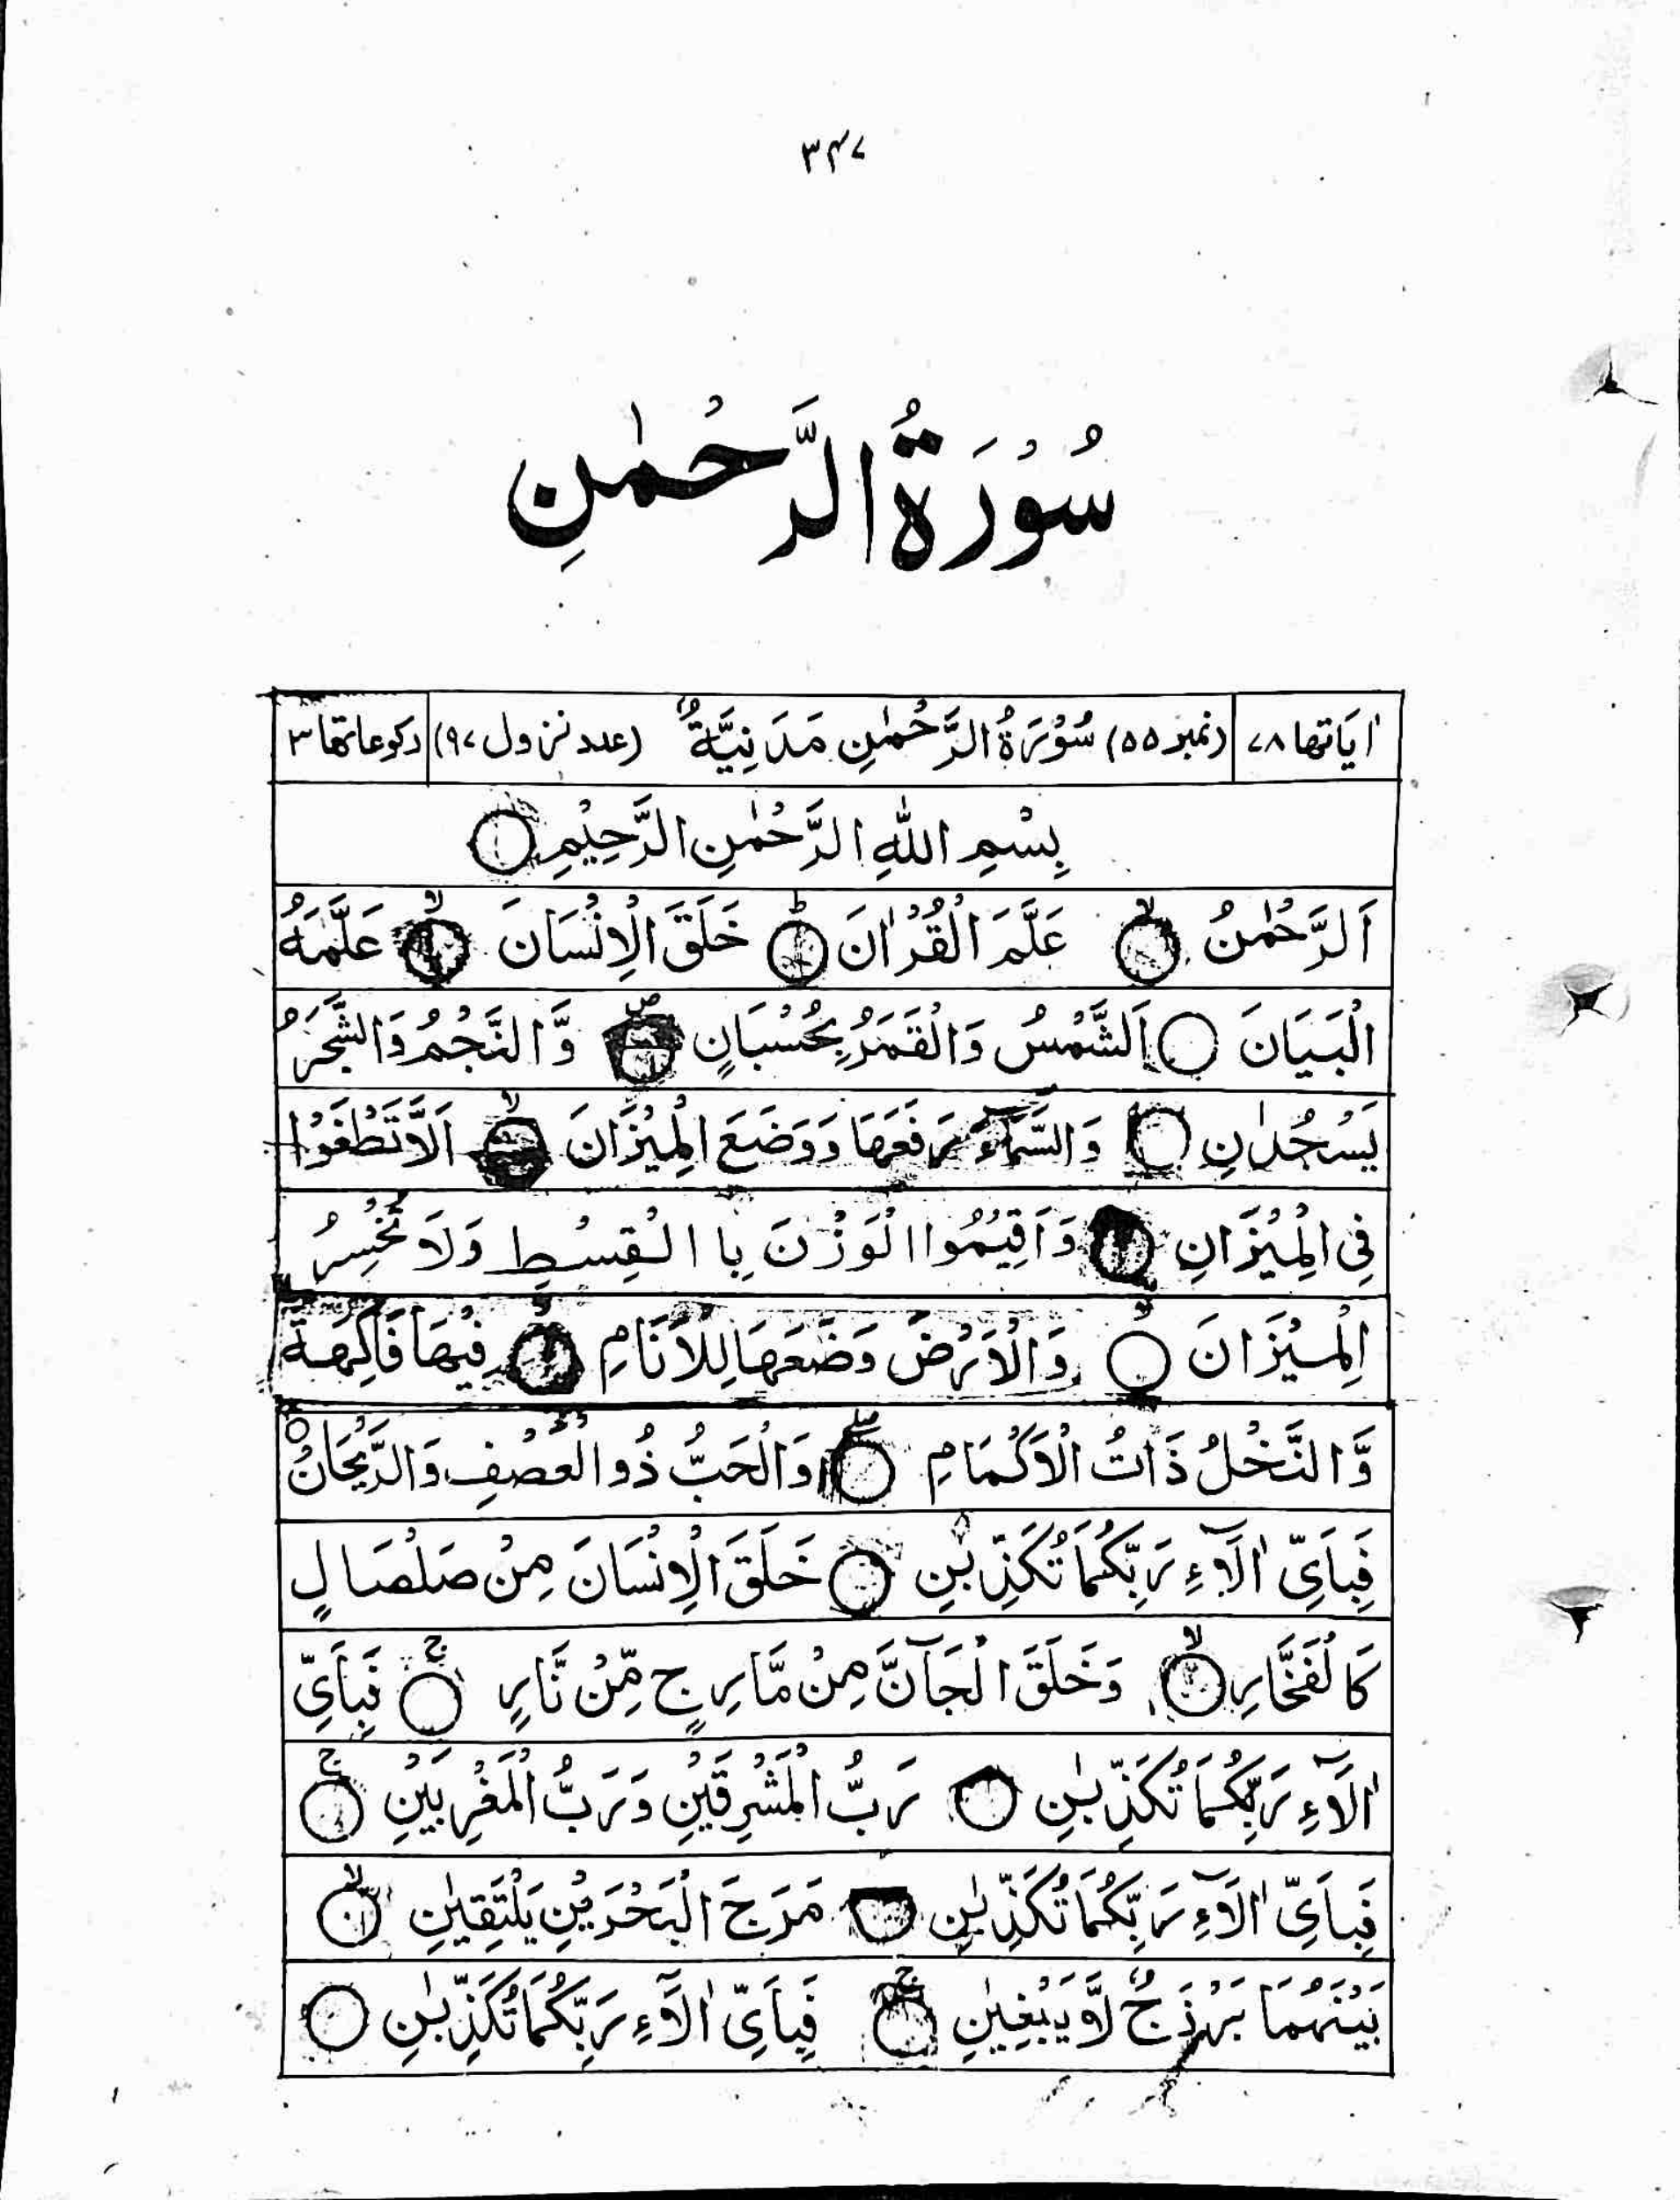 ۳۴۷
سُوْرَةُ الرَّحْمٰنِ
اٰيَاتها ۷۸ (نمبر ۵۵) سُوْرَةُ الرَّحْمٰنِ مَدَنِيَّةٌ (عدد نزول ۹۷) رکوعاتها ۳
بِسْمِ اللّٰهِ الرَّحْمٰنِ الرَّحِيْمِ
اَلرَّحْمٰنُ ۙ عَلَّمَ الْقُرْاٰنَ ؕ خَلَقَ الْاِنْسَانَ ۙ عَلَّمَهُ
الْبَيَانَ اَلشَّمْسُ وَالْقَمَرُ بِحُسْبَانٍ ۪ وَّالنَّجْمُ وَالشَّجَرُ
يَسْجُدٰنِ وَالسَّمَآءَ رَفَعَهَا وَوَضَعَ الْمِيْزَانَ ۙ اَلَّا تَطْغَوْا
فِي الْمِيْزَانِ وَاَقِيْمُوا الْوَزْنَ بِا الْقِسْطِ وَلَا تُخْسِرُ
الْمِيْزَانَ وَالْاَرْضَ وَضَعَهَا لِلْاَنَامِ فِيْهَا فَاكِهَةٌ
وَّالنَّخْلُ ذَاتُ الْاَكْمَامِ ۖ وَالْحَبُّ ذُو الْعَصْفِ وَالرَّيْحَانُ
فَبِاَيِّ اٰلَآءِ رَبِّكُمَا تُكَذِّبٰنِ خَلَقَ الْاِنْسَانَ مِنْ صَلْصَالٍ
كَالْفَخَّارِ ۙ وَخَلَقَ الْجَآنَّ مِنْ مَّارِجٍ مِّنْ نَّارٍ ۚ فَبِاَيِّ
اٰلَآءِ رَبِّكُمَا تُكَذِّبٰنِ رَبُّ الْمَشْرِقَيْنِ وَرَبُّ الْمَغْرِبَيْنِ ۚ
فَبِاَيِّ اٰلَآءِ رَبِّكُمَا تُكَذِّبٰنِ مَرَجَ الْبَحْرَيْنِ يَلْتَقِيٰنِ ۙ
بَيْنَهُمَا بَرْزَخٌ لَّا يَبْغِيٰنِ ۚ فَبِاَيِّ اٰلَآءِ رَبِّكُمَا تُكَذِّبٰنِ